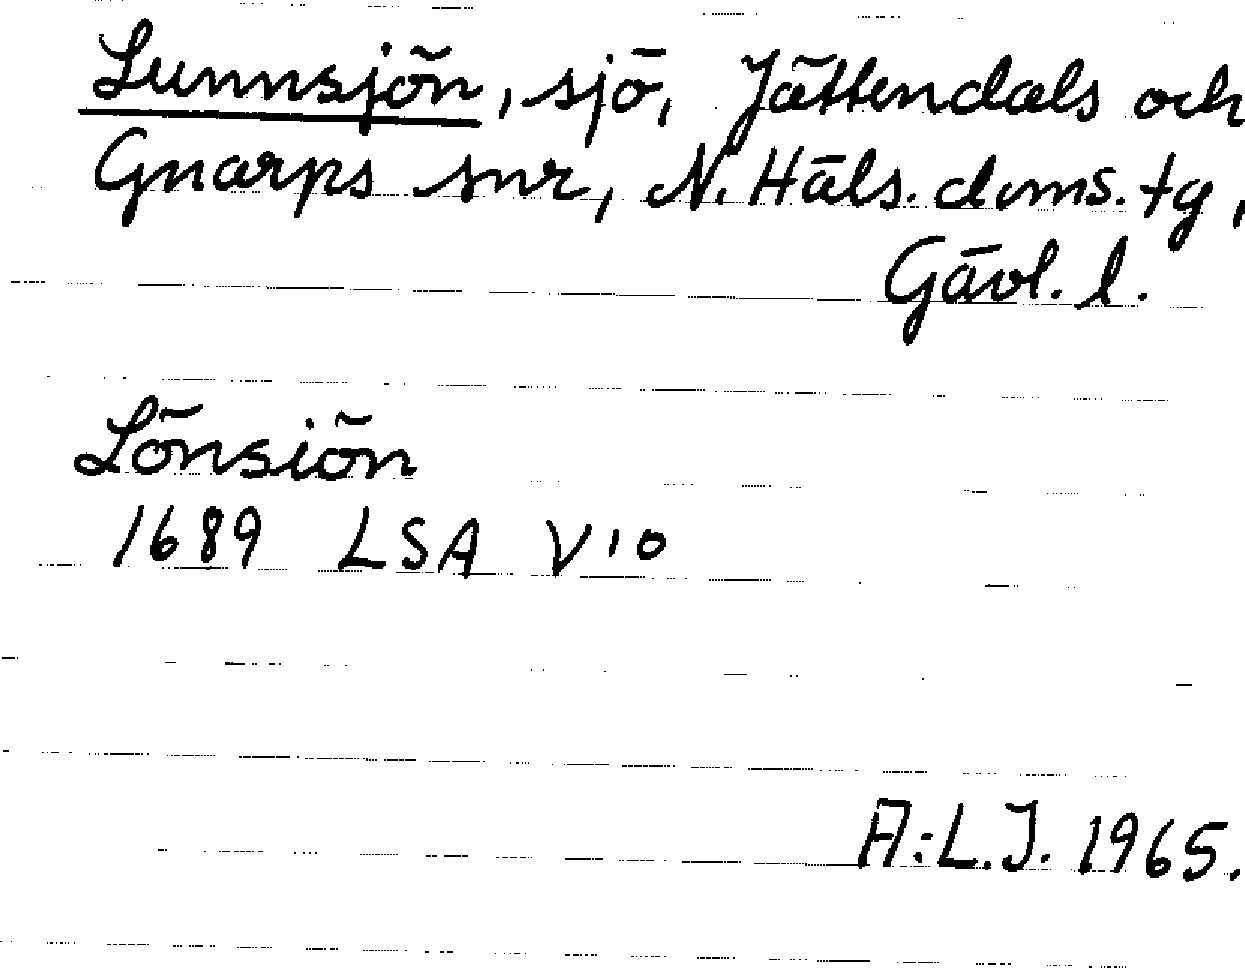 Lunnsjön, sjö, Jättendals och
Gnarps snr, N. Häls. doms. tg,
Gävl. l.
Lönsiön
1689 LSA V 10
A:L.J. 1965.